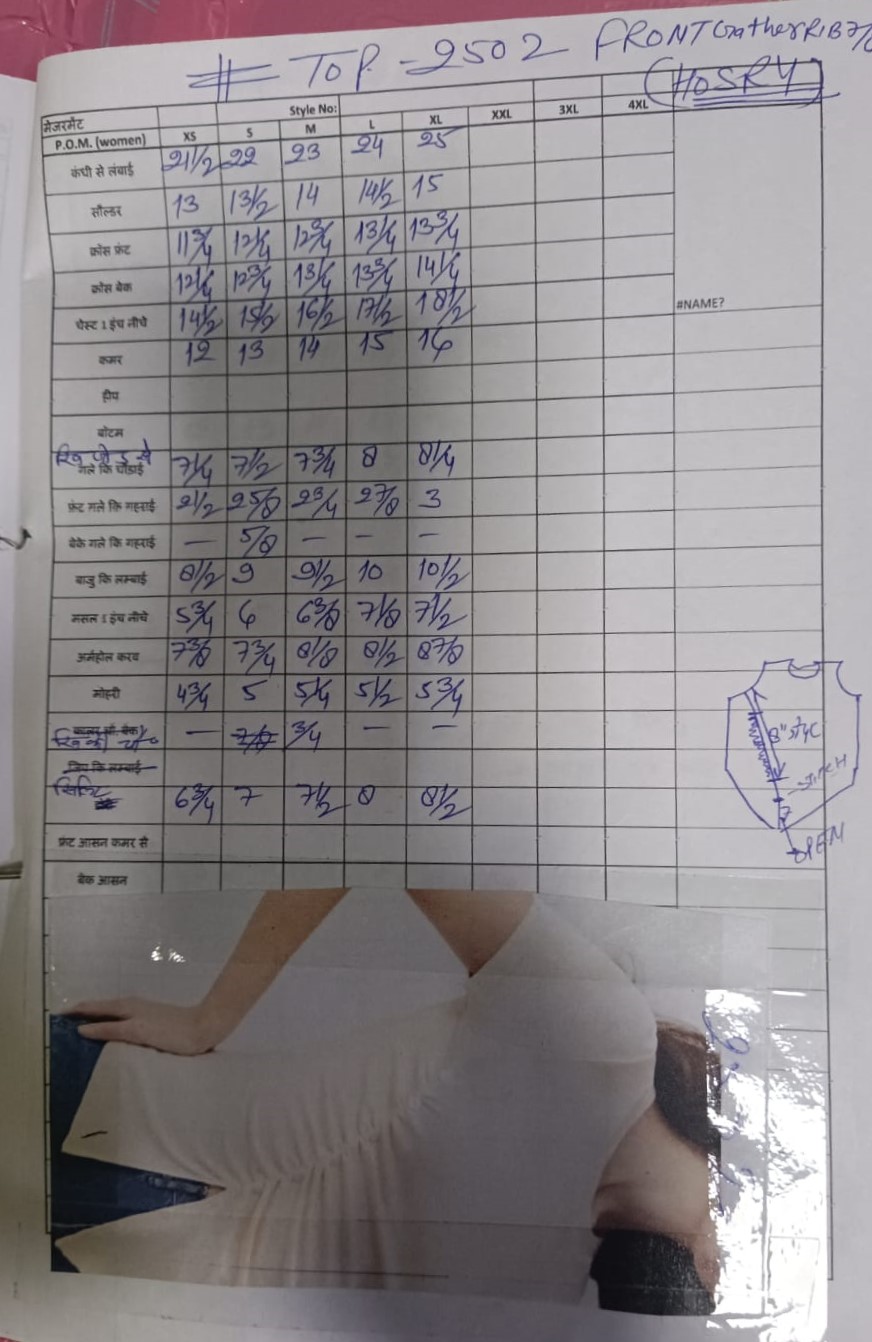 # TOP - 2502 FRONT Gather RIB 7/8
(HOSRY)
मेजरमेंट Style No:
P.O.M. (women) XS S M L XL XXL 3XL 4XL
कंधी से लंबाई 21 1/2 22 23 24 25
सौल्डर 13 13 1/2 14 14 1/2 15
क्रोस फ्रंट 11 3/4 12 1/4 12 3/4 13 1/4 13 3/4
क्रोस बेक 12 1/4 12 3/4 13 1/4 13 3/4 14 1/4
चेस्ट 1 इंच नीचे 14 1/2 15 1/2 16 1/2 17 1/2 18 1/2
#NAME?
कमर 12 13 14 15 16
हीप
बोटम
रिब जोड से
गले कि चौडाई 7 1/4 7 1/2 7 3/4 8 8 1/4
फ्रंट गले कि गहराई 2 1/2 2 5/8 2 3/4 2 7/8 3
बेके गले कि गहराई — 5/8 — — —
बाजु कि लम्बाई 8 1/2 9 9 1/2 10 10 1/2
मसल 1 इंच नीचे 5 3/4 6 6 3/8 7 1/8 7 1/2
अर्महोल करव 7 3/8 7 3/4 8 1/8 8 1/2 8 7/8
मोहरी 4 3/4 5 5 1/4 5 1/2 5 3/4
रिब की चौ० — 7/8 3/4 — —
जिप कि लम्बाई
6 3/4 7 7 1/2 8 8 1/2
फ्रंट आसन कमर से
बेक आसन
8"
STICH
OPEN